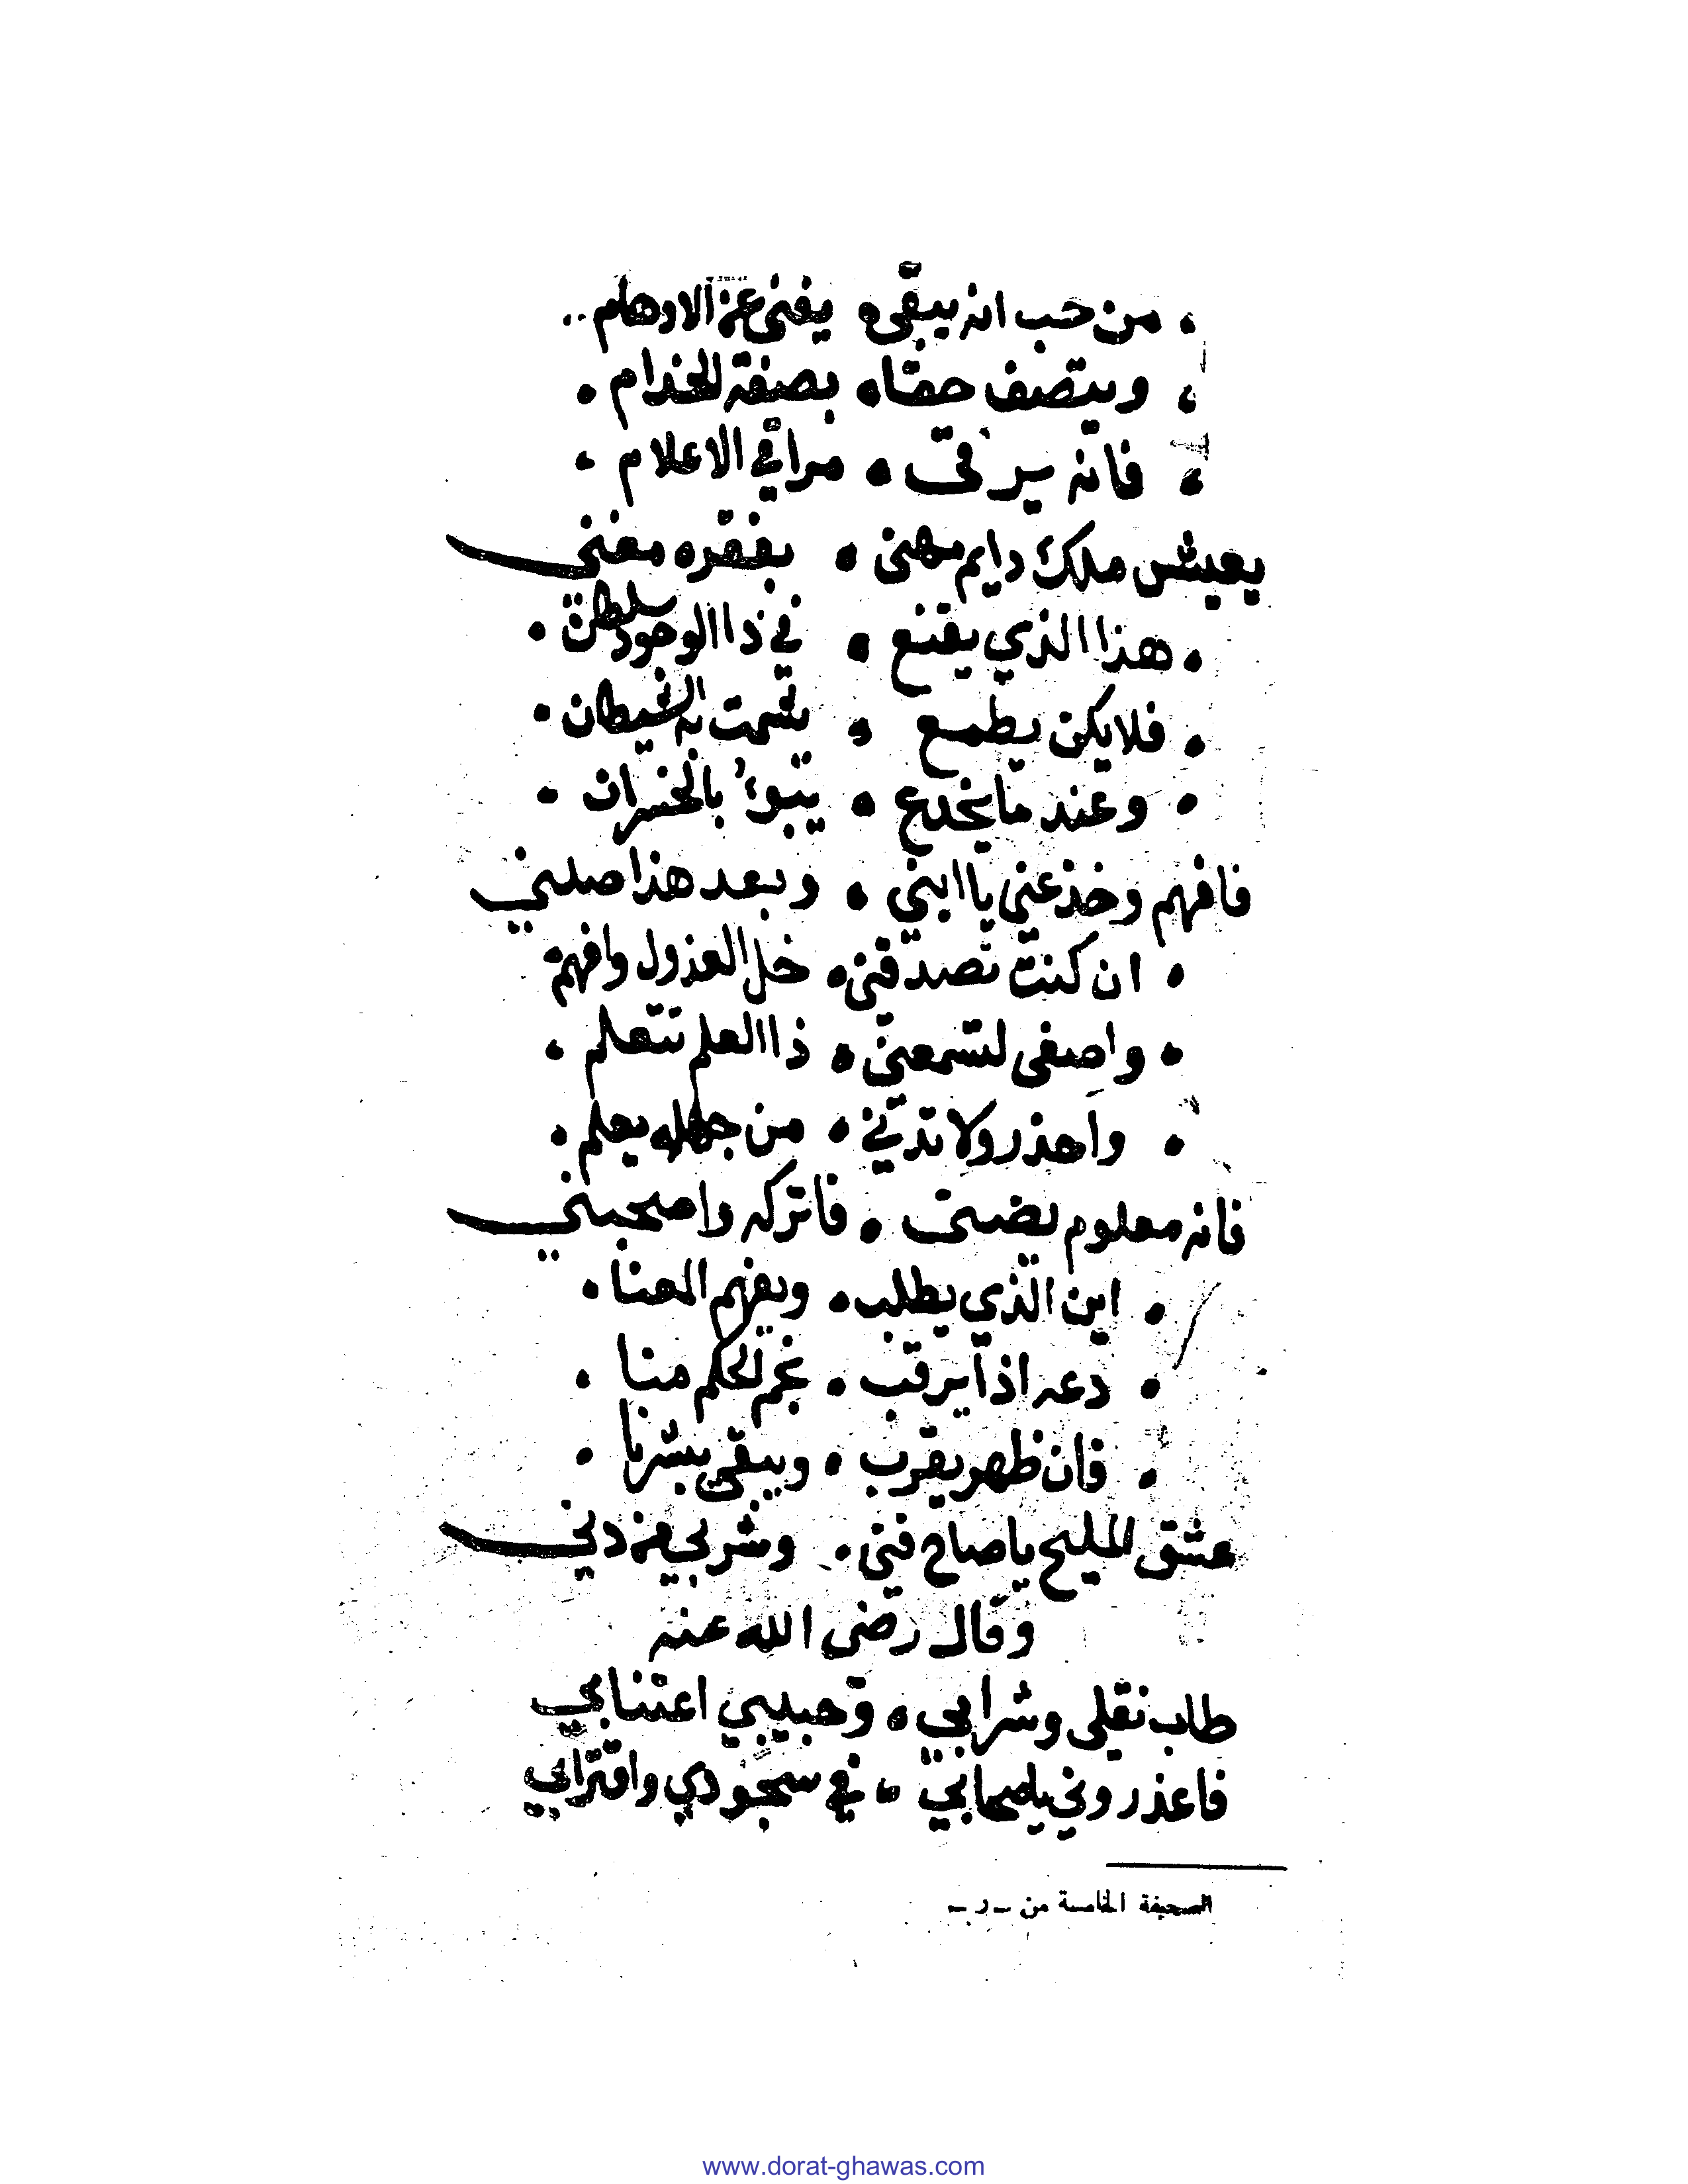 من حب انه يبقى • يفنى عن الاوهام
ويتصف حقا • بصفة الخدام •
فانه يرقى • مراقي الاعلام •
يعيش ملك دايم مهنى • بفقره مغني
هذا الذي يقنع • في ذا الوجود سلطان •
فلا يكن يطمع • يشمت به الشيطان •
وعند ما يخدع • يتبوء بالخسران •
فافهم وخذ عني يا ابني • وبعد هذا صلني
ان كنت تصدقني • خل العذول وافهم
واصغى لتسمعني • ذا العلم تتعلم •
واحذر ولا تدني • من جهله يعلم •
فانه معلوم يضنى • فاتركه واصحبني
اين الذي يطلب • ويفهم المعنا •
دعه اذا يرقب • نجم الحكم منا •
فان ظهر يقرب • ويبقى بشرنا •
عشق المليح يا صاح فني • وشربي من دني
وقال رضى الله عنه
طاب نقلى وشرابي • وحبيبي اعتنابي
فاعذروني ياصحابي • في سجودي واقترابي
الصحيفة الخامسة من - ر -
www.dorat-ghawas.com